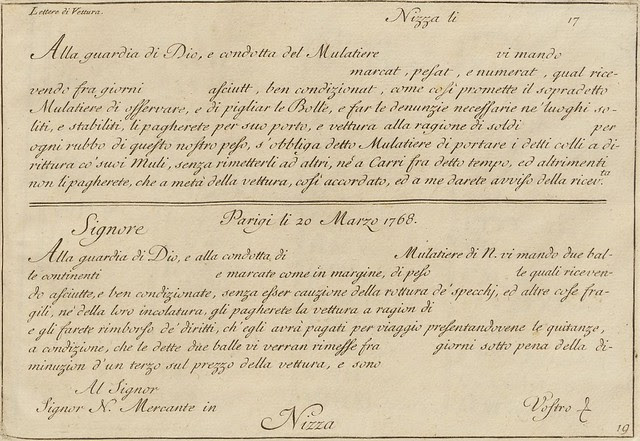 Lettere di Vettura.
Nizza li 17
Alla guardia di Dio, e condotta del Mulatiere vi mando
marcat , peſat , e numerat , qual rice-
vendo fra giorni aſciutt , ben condizionat , come coſi promette il sopradetto
Mulatiere di oſſervare, e di pigliar le Bolle, e far le denunzie neceſſarie ne' luoghi so-
liti, e stabiliti, li pagherete per suo porto, e vettura alla ragione di soldi per
ogni rubbo di queſto noſtro peſo, s'obbliga detto Mulatiere di portare i detti colli a di-
rittura co' suoi Muli, senza rimetterli ad altri, nè a Carri fra detto tempo, ed altrimenti
non li pagherete, che a metà della vettura, coſi accordato, ed a me darete avviſo della ricev.ta
Parigi li 20 Marzo 1768.
Signore
Alla guardia di Dio, e alla condotta, di Mulatiere di N. vi mando due bal-
le continenti e marcate come in margine, di peſo le quali riceven-
do aſciutte, e ben condizionate, senza eſser cauzione della rottura de' specchj, ed altre coſe fra-
gili, nè della loro incolatura, gli pagherete la vettura a ragion di
e gli farete rimborſo de' diritti, ch'egli avrà pagati per viaggio preſentandovene le quitanze,
a condizione, che le dette due balle vi verran rimeſſe fra giorni sotto pena della di-
minuzion d'un terzo sul prezzo della vettura, e sono
Al Signor
Signor N. Mercante in Voſtro &
Nizza
19